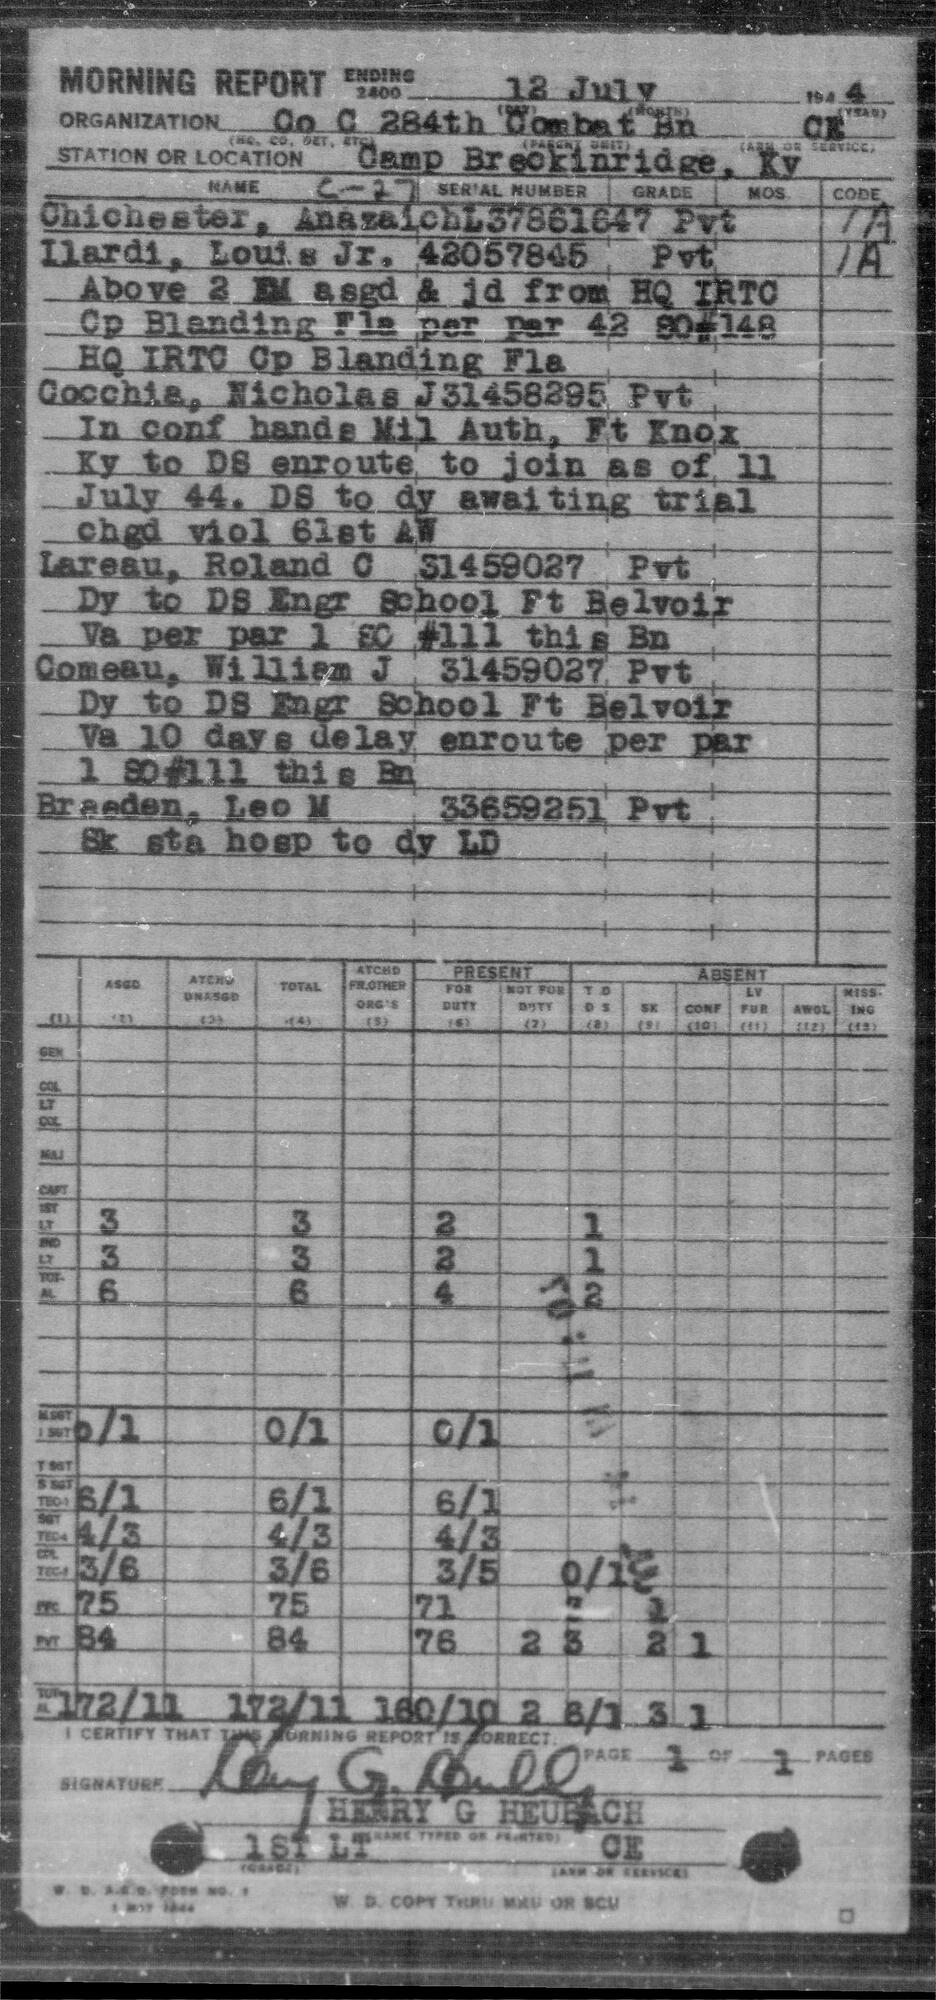 MORNING REPORT ENDING 2400 12 July 1944
(DAY) (MONTH) (YEAR)
ORGANIZATION Co C 284th Combat Bn CE
(HQ. CO. DET. ETC.) (PARENT UNIT) (ARM OR SERVICE)
STATION OR LOCATION Camp Breckinridge, Ky
NAME C-27 SERIAL NUMBER GRADE MOS. CODE
Chichester, AnazaichL37861647 Pvt 1A
Ilardi, Louis Jr. 42057845 Pvt 1A
Above 2 EM asgd & jd from HQ IRTC
Cp Blanding Fla per par 42 SO#148
HQ IRTC Cp Blanding Fla
Cocchia, Nicholas J31458295 Pvt
In conf hands Mil Auth, Ft Knox
Ky to DS enroute to join as of 11
July 44. DS to dy awaiting trial
chgd viol 61st AW
Lareau, Roland C 31459027 Pvt
Dy to DS Engr School Ft Belvoir
Va per par 1 SO #111 this Bn
Comeau, William J 31459027 Pvt
Dy to DS Engr School Ft Belvoir
Va 10 days delay enroute per par
1 SO#111 this Bn
Braeden, Leo M 33659251 Pvt
Sk sta hosp to dy LD
PRESENT ABSENT
ASGD ATCHD UNASGD TOTAL ATCHD FR.OTHER ORG'S FOR DUTY NOT FOR DUTY T D D S SK CONF LV FUR AWOL MISS-ING
(1) (2) (3) (4) (5) (6) (7) (8) (9) (10) (11) (12) (13)
GEN
COL
LT COL
MAJ
CAPT
1ST LT 3 3 2 1
2ND LT 3 3 2 1
TOT-AL 6 6 4 2
M.SGT 1 SGT 0/1 0/1 0/1
T SGT
S SGT TEC-3 6/1 6/1 6/1
SGT TEC-4 4/3 4/3 4/3
CPL TEC-5 3/6 3/6 3/5 0/1
PFC 75 75 71 1
PVT 84 84 76 2 3 2 1
TOT-AL 172/11 172/11 160/10 2 6/1 3 1
I CERTIFY THAT THIS MORNING REPORT IS CORRECT.
PAGE 1 OF 1 PAGES
SIGNATURE
HENRY G HEUBACH
(NAME TYPED OR PRINTED)
1ST LT CE
(GRADE) (ARM OR SERVICE)
W. D. A.G.O. FORM NO. 1
W. D. COPY THRU MRU OR SCU